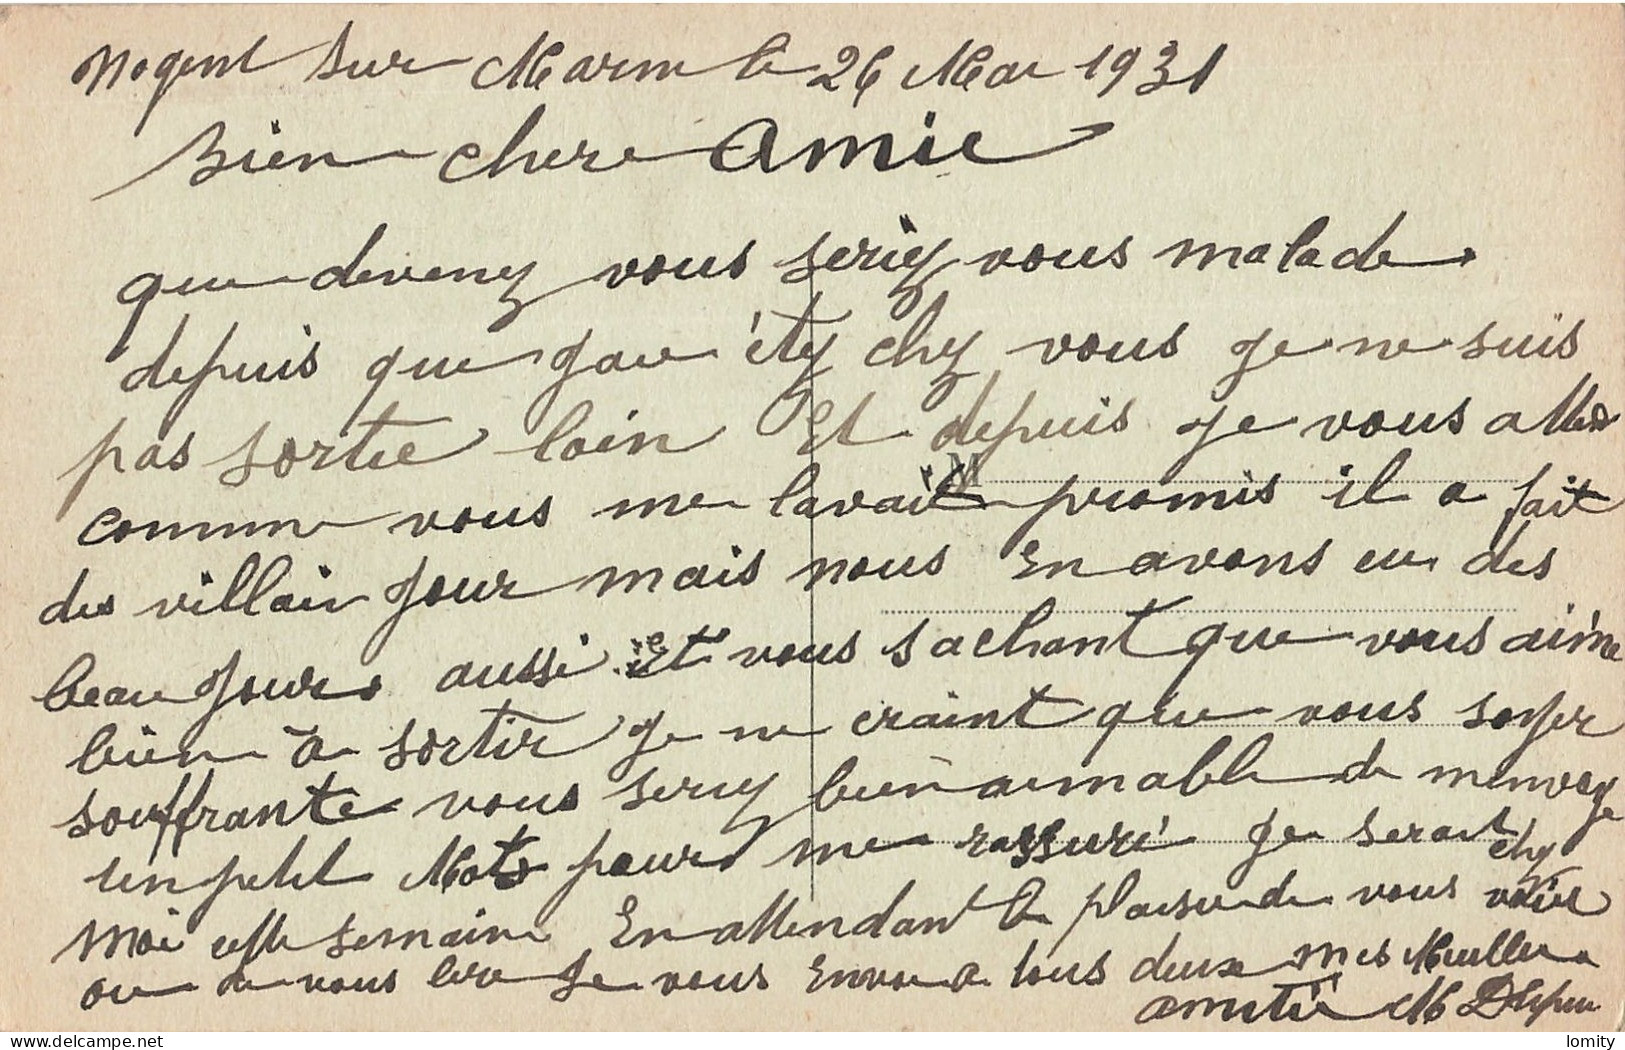 Nogent sur Marne le 26 Mai 1931
Bien chere Amie
que devenez vous seriez vous malade
depuis que jai étez chez vous je ne suis
pas sortie loin Et depuis je vous attend
comme vous me lavait promis il a fait
des villain jour mais nous En avons eu des
beau jours aussi Et vous sachant que vous aimé
bien à sortir je ne craint que vous soyer
souffrante vous serez bien aimable de menvoye
un petit Mots pour me rassuré je serait chez
Moi cette semaine En attendant le plaisir de vous voire
ou de vous lire je vous Envoi a tous deux mes Meilleur
amitié M
M
delcampe.net
lomity